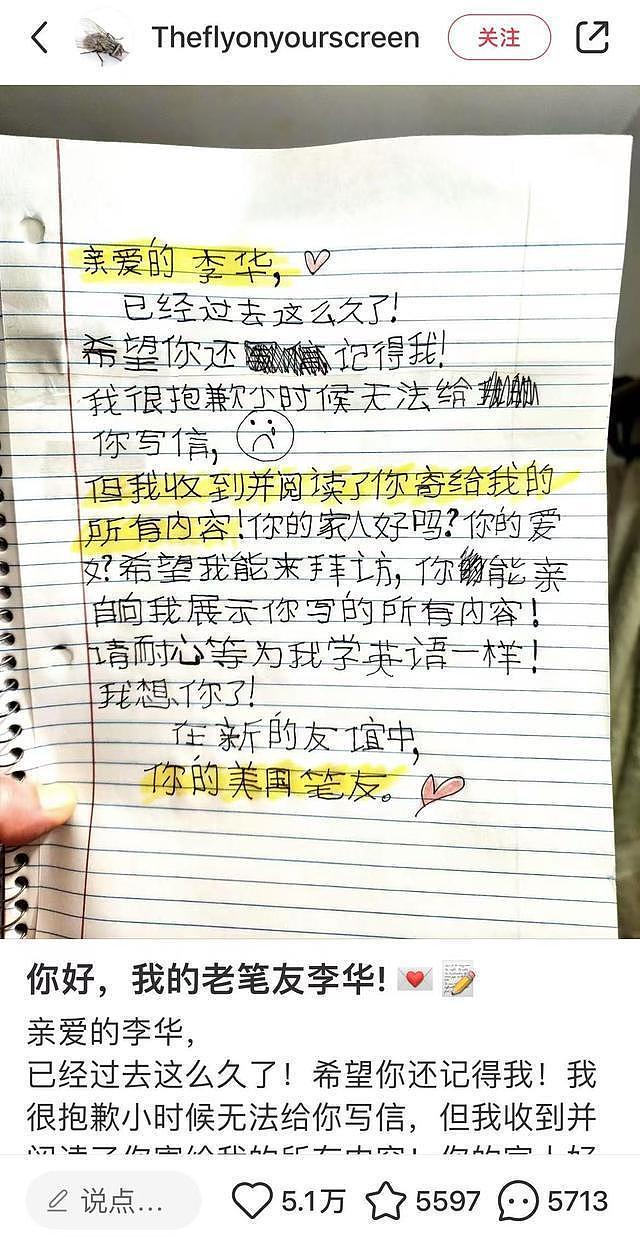 Theflyonyourscreen
关注
亲爱的 李华,
已经过去这么久了!
希望你还 记得我!
我很抱歉小时候无法给
你写信,
但我收到并阅读了你寄给我的
所有内容!你的家人好吗?你的爱
好?希望我能来拜访,你能亲
自向我展示你写的所有内容!
请耐心等为我学英语一样!
我想你了!
在新的友谊中,
你的美国笔友。
你好，我的老笔友李华! 💌 📝
亲爱的李华，
已经过去这么久了！希望你还记得我！我
很抱歉小时候无法给你写信，但我收到并
阅读了你寄给我的所有内容！你的家人好
说点...
5.1万
5597
5713